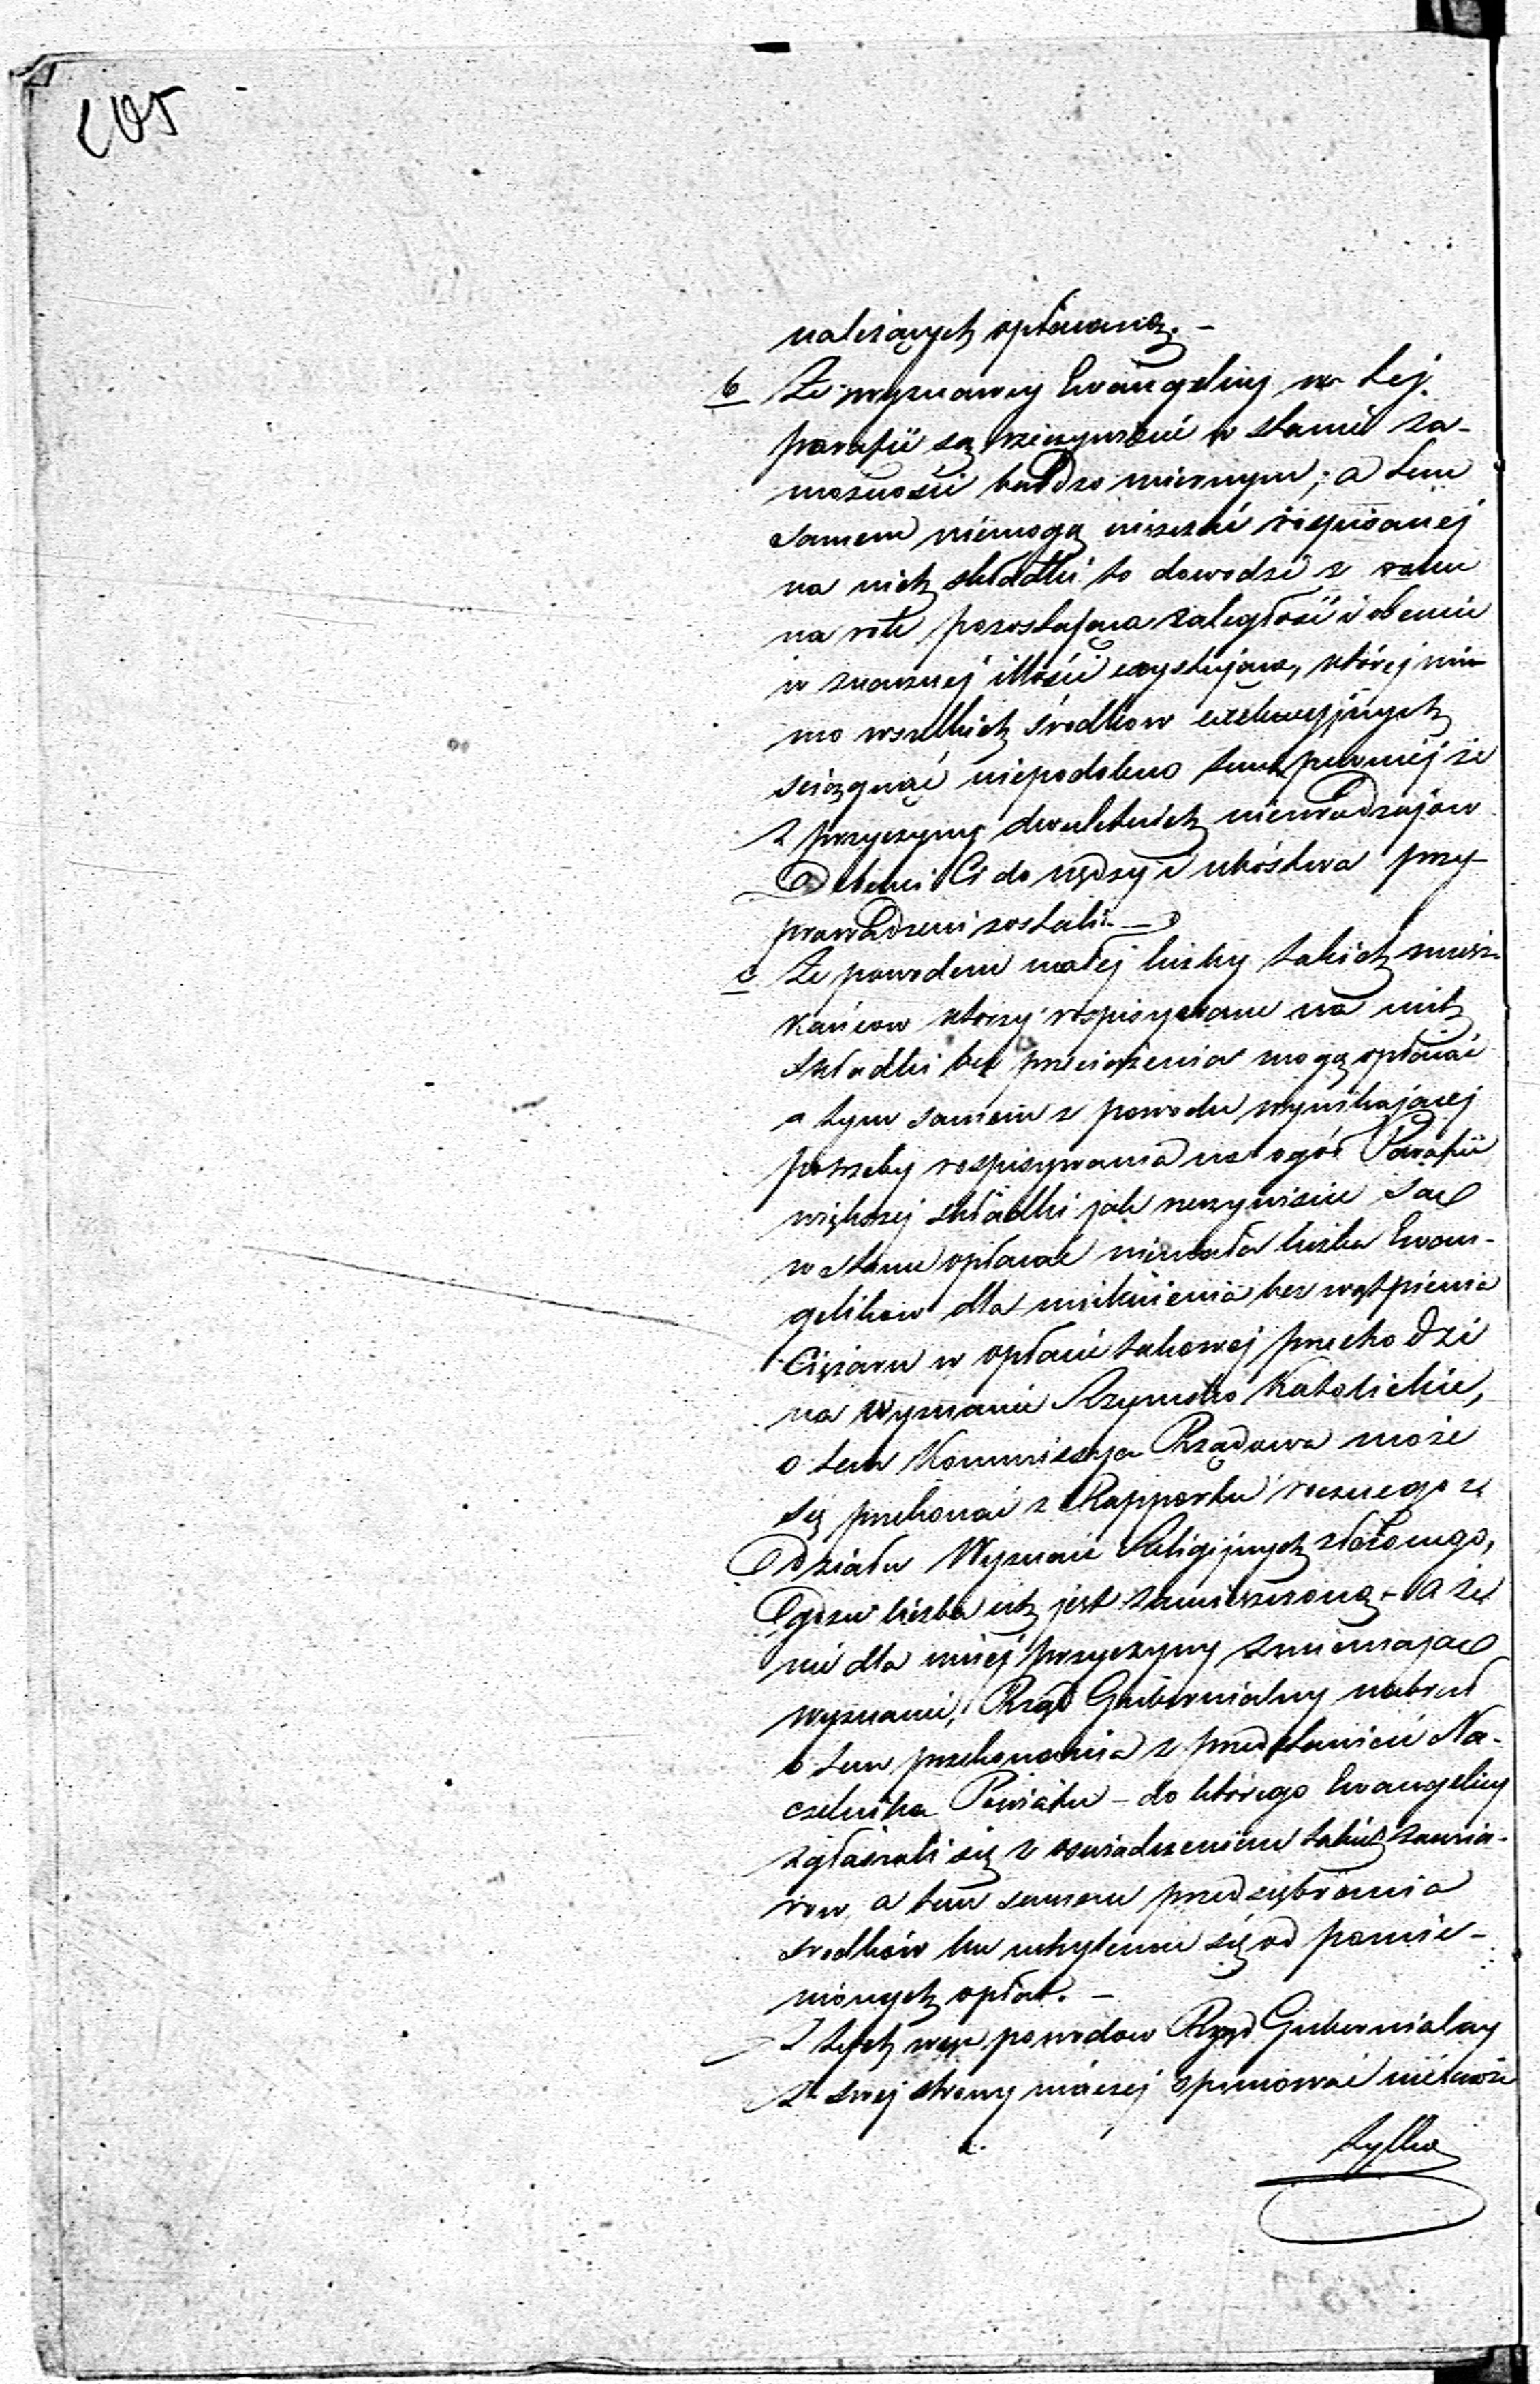 205
należących opłacania. -
b Że wyznawcy Ewangeliccy w tej
parafii są rzeczywiście w stanie za-
możności bardzo miernym; a tem
samem niemogą uiszczać rospisanej
na nich składki to dowodzi z roku
na rok pozostająca zaległość i obecnie
w znacznej illości exystująca, której mi-
mo wszelkich środkow exekucyjnych
sciągnąć niepodobno tem pewniej że
z przyczyny dwuletnich nieurodzajow
Debenci Ci do nędzy i ubóstwa przy-
prowadzeni zostali. -
c Że powodem małej liczby takich miesz-
kańcow ktorzy rospisywane na nich
składki bez przeciążenia mogą opłacać
a tym samem z powodu wynikającej
potrzeby rospisywania na ogół Parafii
większej składki jak rzeczywiście są
w stanie opłacać niemała liczba Ewan-
gelikow dla uniknienia bez wątpienia
Ciężaru w opłacie takowej przechodzi
na Wyznanie Rzymsko Katolickie,
o tem Kommissya Rządowa może
się przekonać z Rapportu rocznego z
Działu Wyznań Religijnych złożonego,
gdzie liczba ich jest zamieszczoną - a że
nie dla innej przyczyny zmieniają
wyznanie, Rząd Gubernialny nabrał
o tem przekonania z przedstawień Na-
czelnika Powiatu - do którego Ewangelicy
zgłaszali się z oświadczeniem takich zamia-
row, a tem samem przedsiębrania
srodków ku uchyleniu się od pomie-
nionych opłat. -
Z tych więc powodow Rząd Gubernialny
z swej strony inaczej opiniować niemoże
tylko